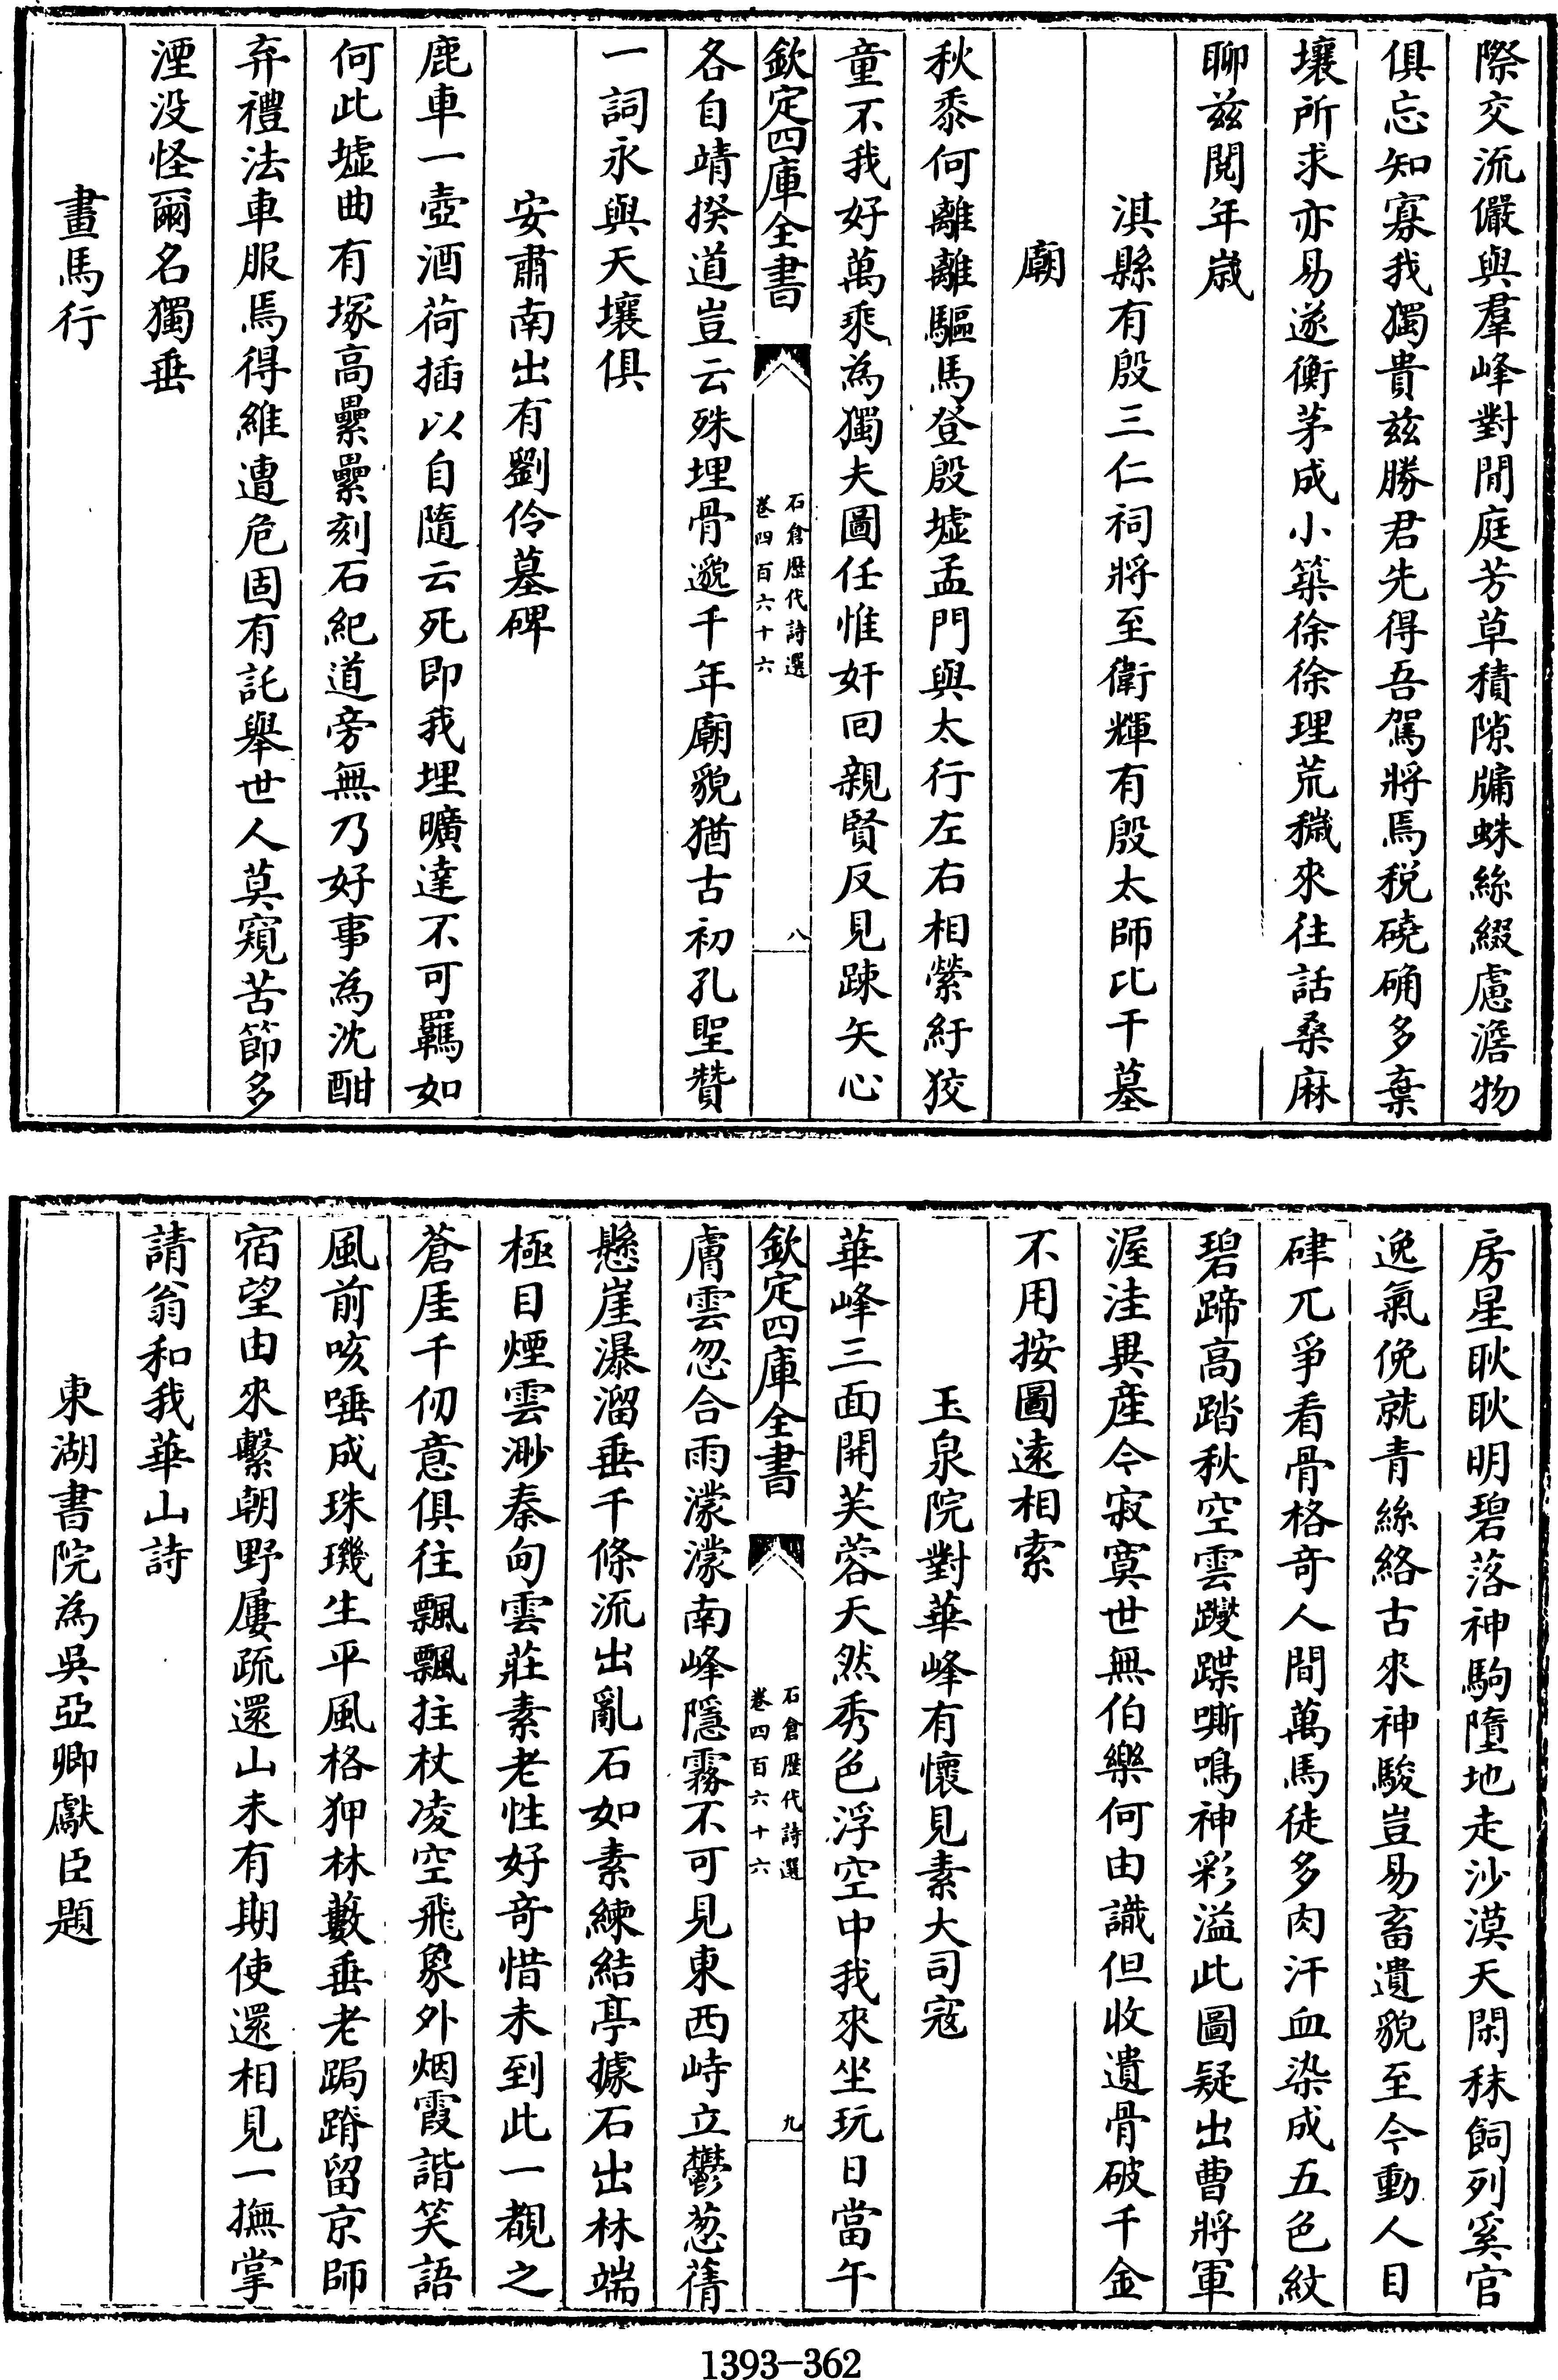 際交流儼與羣峰對閒庭芳草積隙牖蛛絲綴慮澹物
俱忘知寡我獨貴兹勝君先得吾駕將焉税磽确多棄
壤所求亦易遂衡茅成小築徐徐理荒穢來往話桑麻
聊兹閲年歲
淇縣有殷三仁祠將至衛輝有殷太師比干墓
廟
秋黍何離離驅馬登殷墟孟門與太行左右相縈紆狡
童不我好萬乘為獨夫圖任惟奸回親賢反見踈矢心
欽定四庫全書
石倉歴代詩選
卷四百六十六
八
各自靖揆道豈云殊埋骨邈千年廟貌猶古初孔聖贊
一詞永與天壤俱
安肅南出有劉伶墓碑
鹿車一壺酒荷插以自隨云死即我埋曠達不可羈如
何此墟曲有塚高纍纍刻石紀道旁無乃好事為沈酣
弃禮法車服焉得維遭危固有託舉世人莫窺苦節多
湮没怪爾名獨垂
畫馬行
房星耿耿明碧落神駒墮地走沙漠天閑秣飼列奚官
逸氣俛就青絲絡古來神駿豈易畜遺貌至今動人目
硉兀爭看骨格奇人間萬馬徒多肉汗血染成五色紋
碧蹄高踏秋空雲躞蹀嘶鳴神彩溢此圖疑出曹將軍
渥洼異産今寂寞世無伯樂何由識但收遺骨破千金
不用按圖遠相索
玉泉院對華峰有懷見素大司寇
華峰三面開芙蓉天然秀色浮空中我來坐玩日當午
欽定四庫全書
石倉歴代詩選
卷四百六十六
九
膚雲忽合雨濛濛南峰隱霧不可見東西峙立鬱葱蒨
懸崖瀑溜垂千條流出亂石如素練結亭據石出林端
極目煙雲渺秦甸雲莊素老性好奇惜未到此一覩之
蒼厓千仞意俱往飄飄拄杖凌空飛象外烟霞諧笑語
風前咳唾成珠璣生平風格狎林藪垂老跼蹐留京師
宿望由來繫朝野屢疏還山未有期使還相見一撫掌
請翁和我華山詩
東湖書院為吳亞卿獻臣題
1393-362